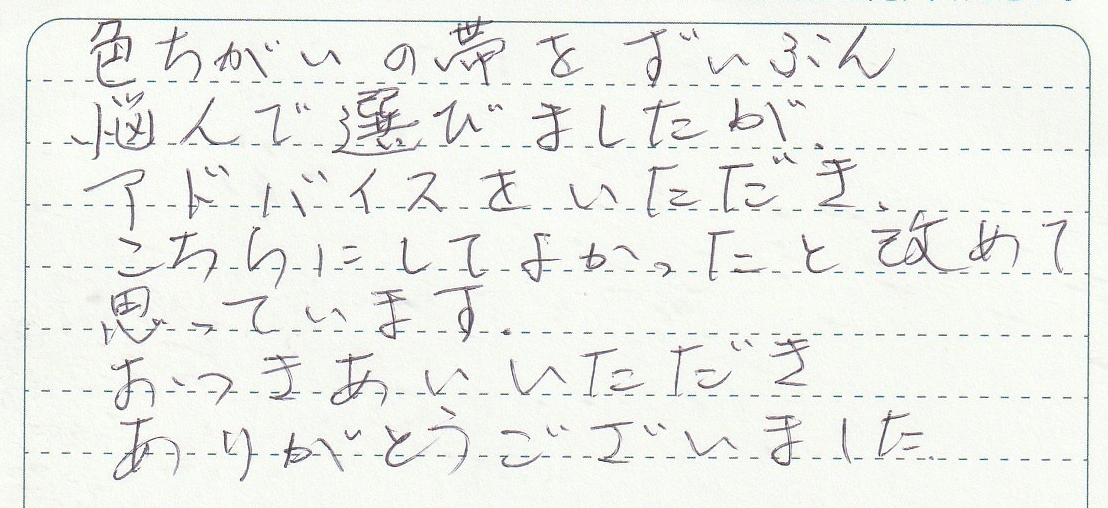 色ちがいの帯をずいぶん
悩んで選びましたが、
アドバイスをいただき、
こちらにしてよかったと改めて
思っています。
おつきあいいただき
ありがとうございました